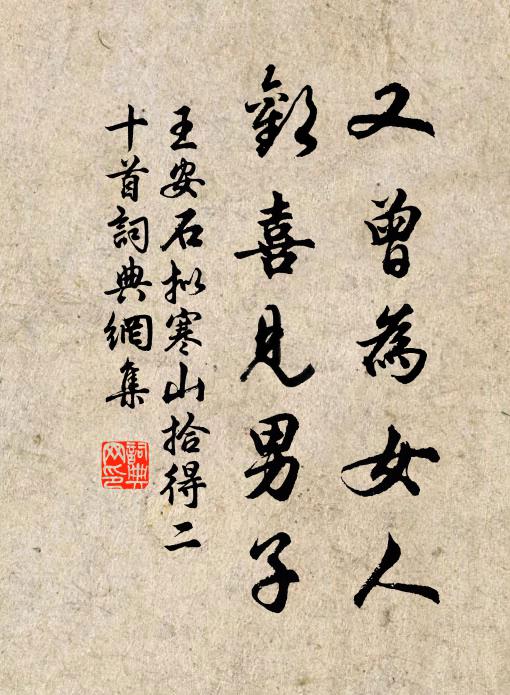 又曾為女人
歡喜見男子
王安石拟寒山拾得二
十首詞典網集
詞典
网印